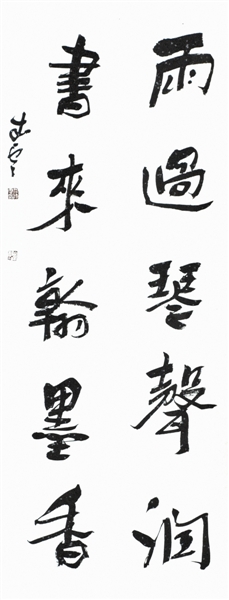 雨過琴聲潤
書來翰墨香